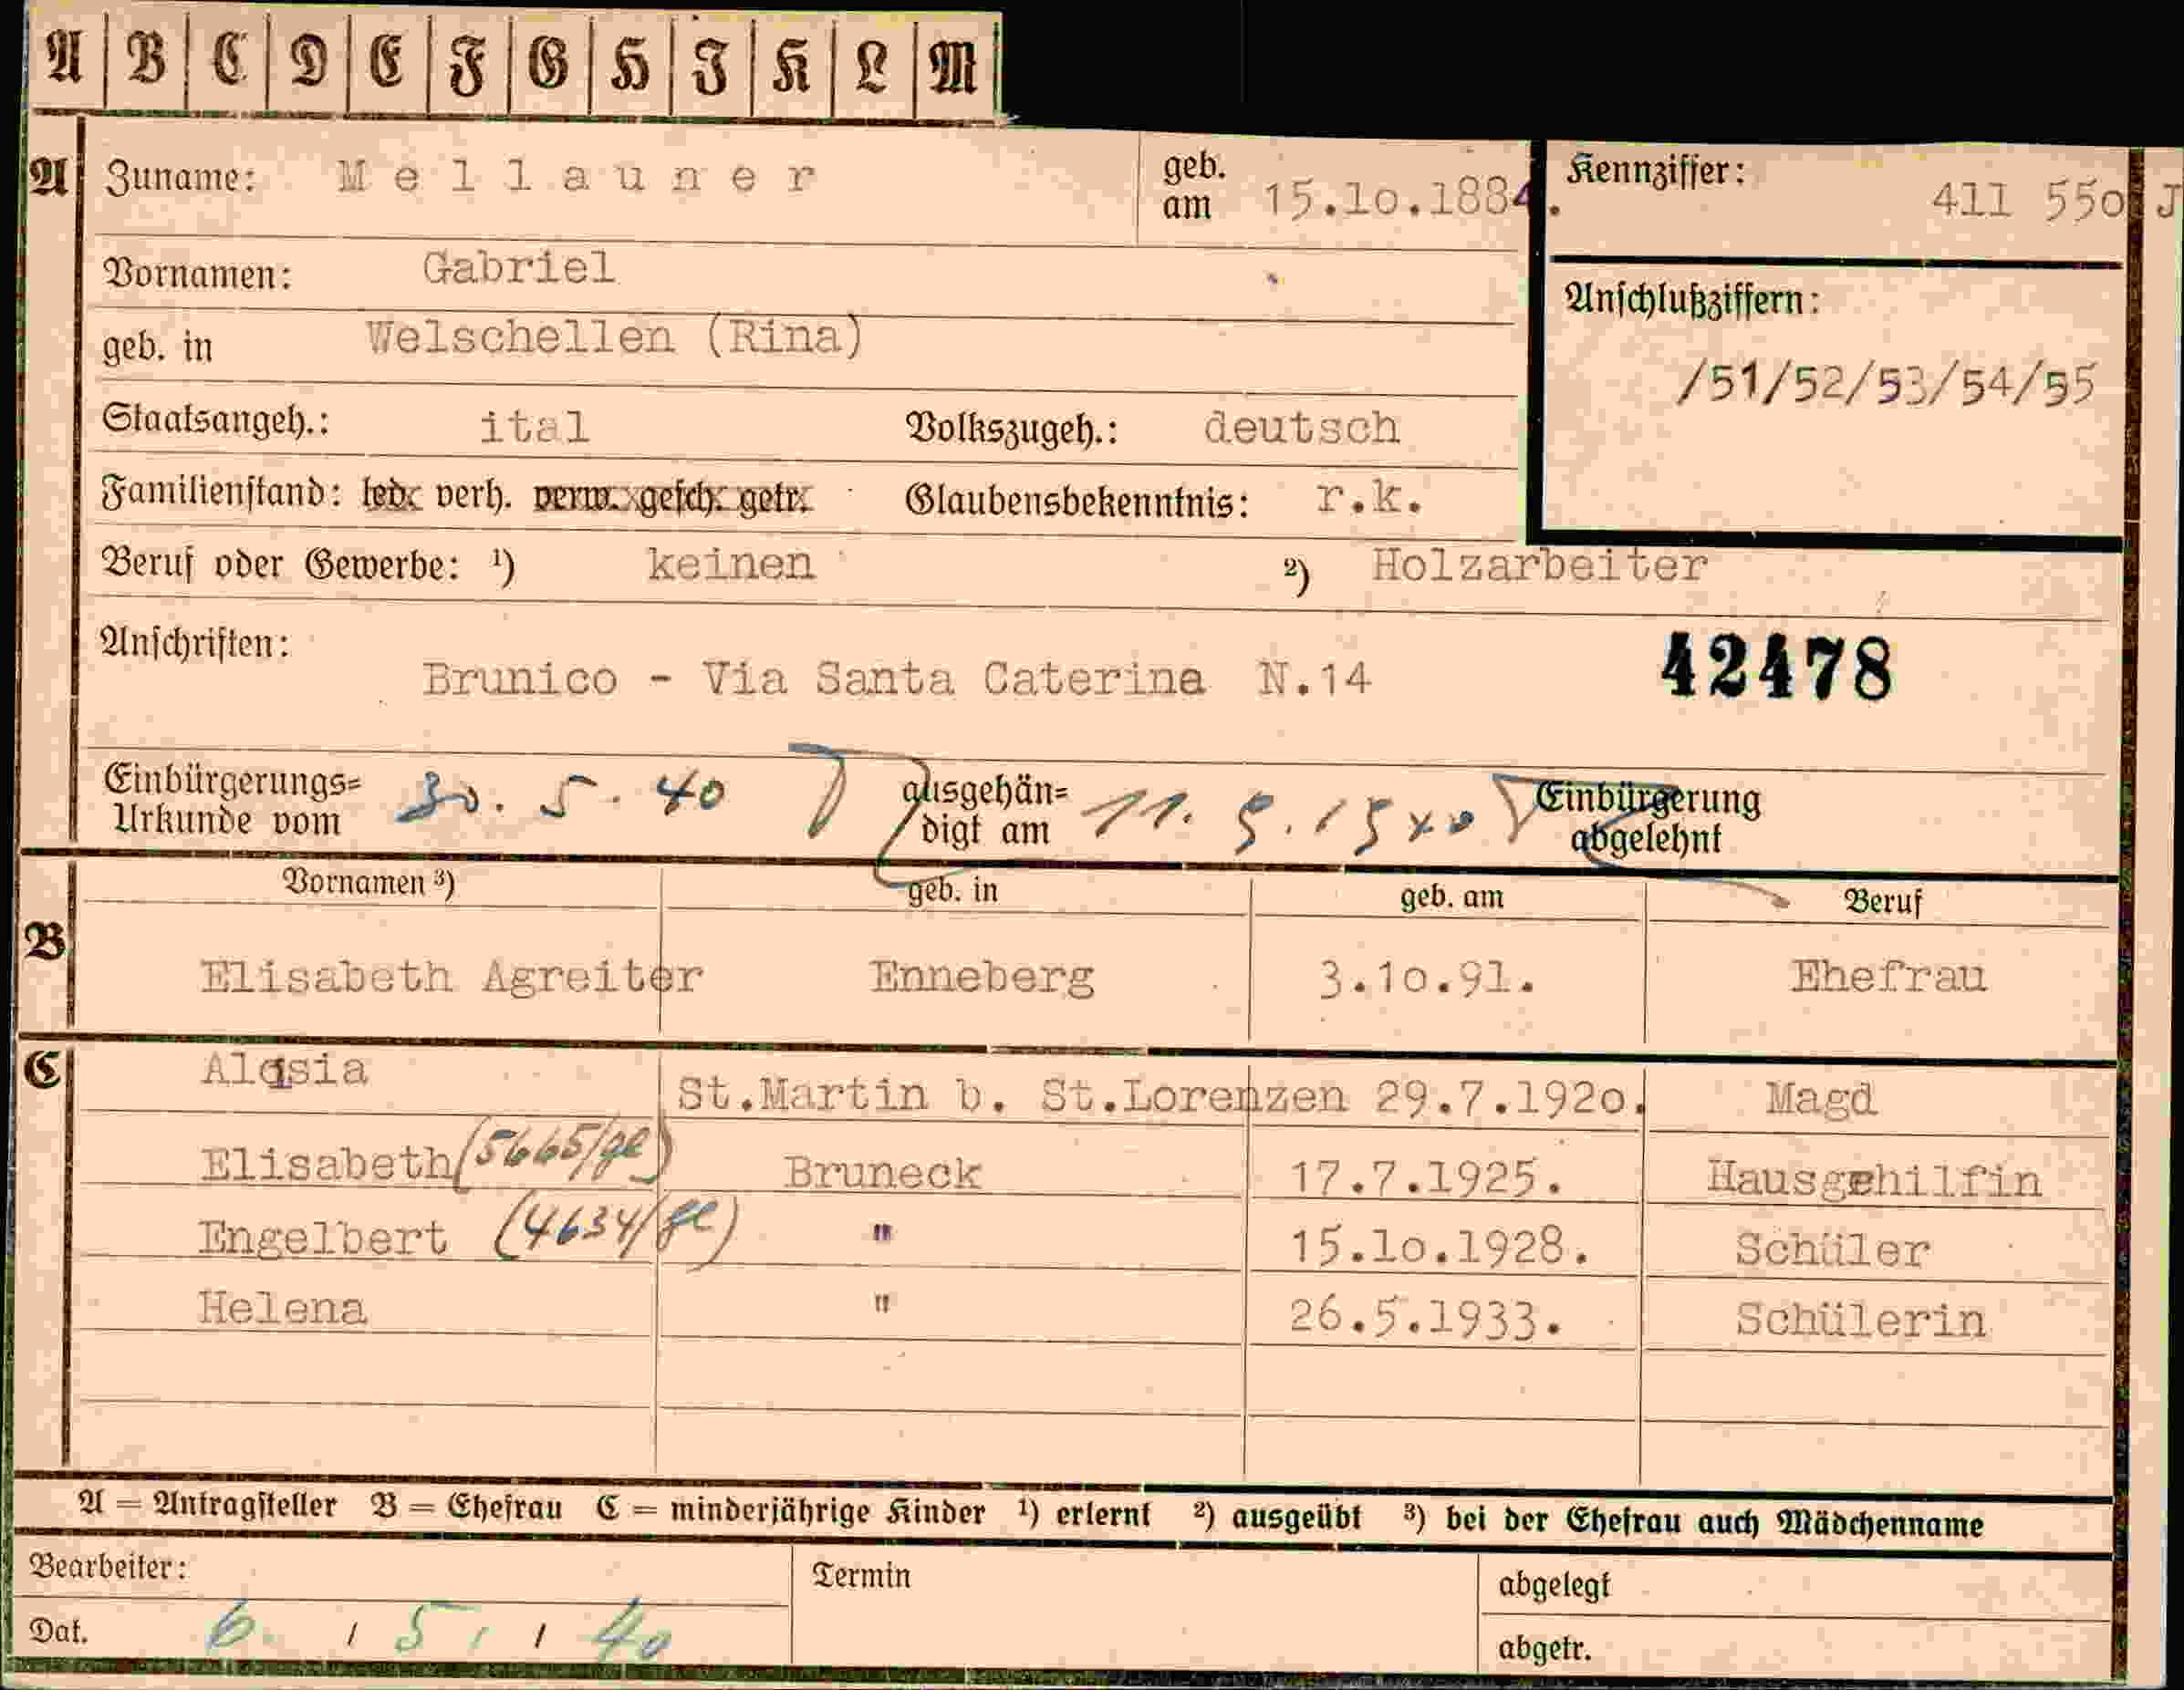 A B C D E F G H I K L M
A Zuname: Mellauner geb. am 15.10.1884. Kennziffer: 411 550 J
Vornamen: Gabriel
geb. in Welschellen (Rina) Anschlußziffern:
/51/52/53/54/55
Staatsangeh.: ital Volkszugeh.: deutsch
Familienstand: led. verh. verw. gesch. getr. Glaubensbekenntnis: r.k.
Beruf oder Gewerbe: ¹) keinen ²) Holzarbeiter
Anschriften:
Brunico - Via Santa Caterina N.14 42478
Einbürgerungs= Urkunde vom 30. 5. 40 ausgehän= digt am Einbürgerung abgelehnt
Vornamen ³) geb. in geb. am Beruf
B Elisabeth Agreiter Enneberg 3.10.91. Ehefrau
C Aloisia St.Martin b. St.Lorenzen 29.7.1920. Magd
Elisabeth (5665/ge) Bruneck 17.7.1925. Hausgehilfin
Engelbert (4634/ge) " 15.10.1928. Schüler
Helena " 26.5.1933. Schülerin
A = Antragsteller B = Ehefrau C = minderjährige Kinder ¹) erlernt ²) ausgeübt ³) bei der Ehefrau auch Mädchenname
Bearbeiter: Termin abgelegt
Dat. 6. / 5 / 40 abgetr.